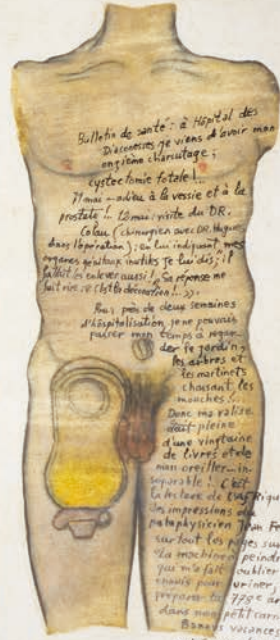 Bulletin de santé : à Hôpital des
Diaconesses je viens d'avoir mon
onzième charcutage ;
cystectomie totale !...
11 mai – adieu à la vessie et à la
prostate !.. 12 mai : visite du DR.
(chirurgien avec DR.
dans l'opération) ; en lui indiquant mes
organes génitaux inutiles je lui dis ; il
fallait les enlever aussi ! Sa réponse me
fait rire : « C'est la décoration !... »
Puis, près de deux semaines
d'hospitalisation, je ne pouvais
passer mon temps à regar-
der le jardin,
les arbres et
les martinets
chassant les
mouches !...
Donc ma valise
était pleine
d'une vingtaine
de livres et de
mon oreiller – in-
séparable ! C'est
la lecture de
des impressions du
pataphysicien Jean Fe
surtout les pages sur
"La machine à peindre
qui m'a fait oublier
ennuis pour uriner,
préparer la 779e
dans mon petit
Bonnes vacances